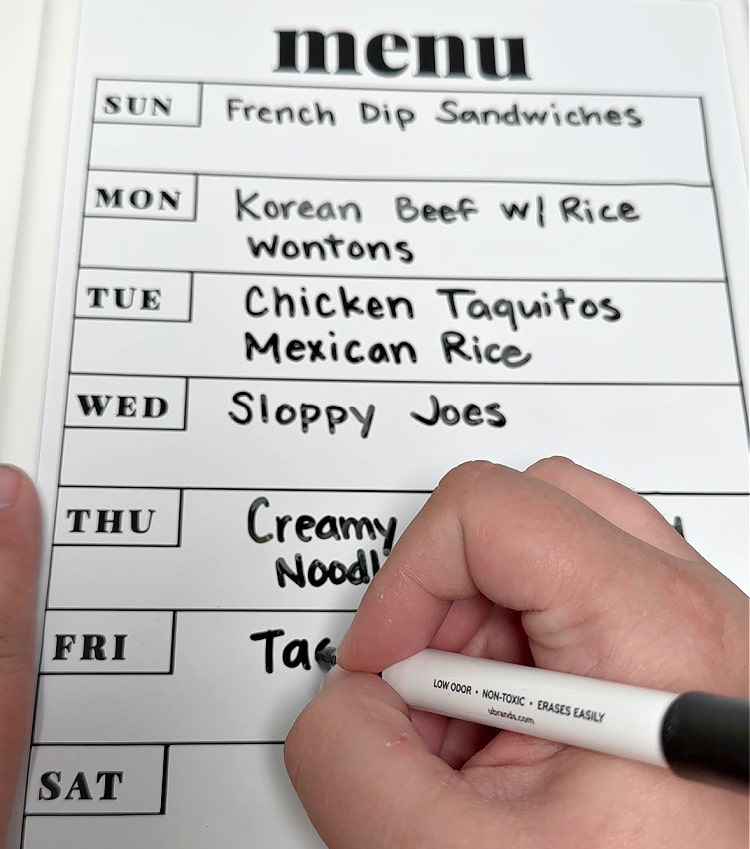 menu
SUN
French Dip Sandwiches
MON
Korean Beef w/ Rice
Wontons
TUE
Chicken Taquitos
Mexican Rice
WED
Sloppy Joes
THU
Creamy
FRI
SAT
LOW ODOR • NON-TOXIC • ERASES EASILY
ubrands.com